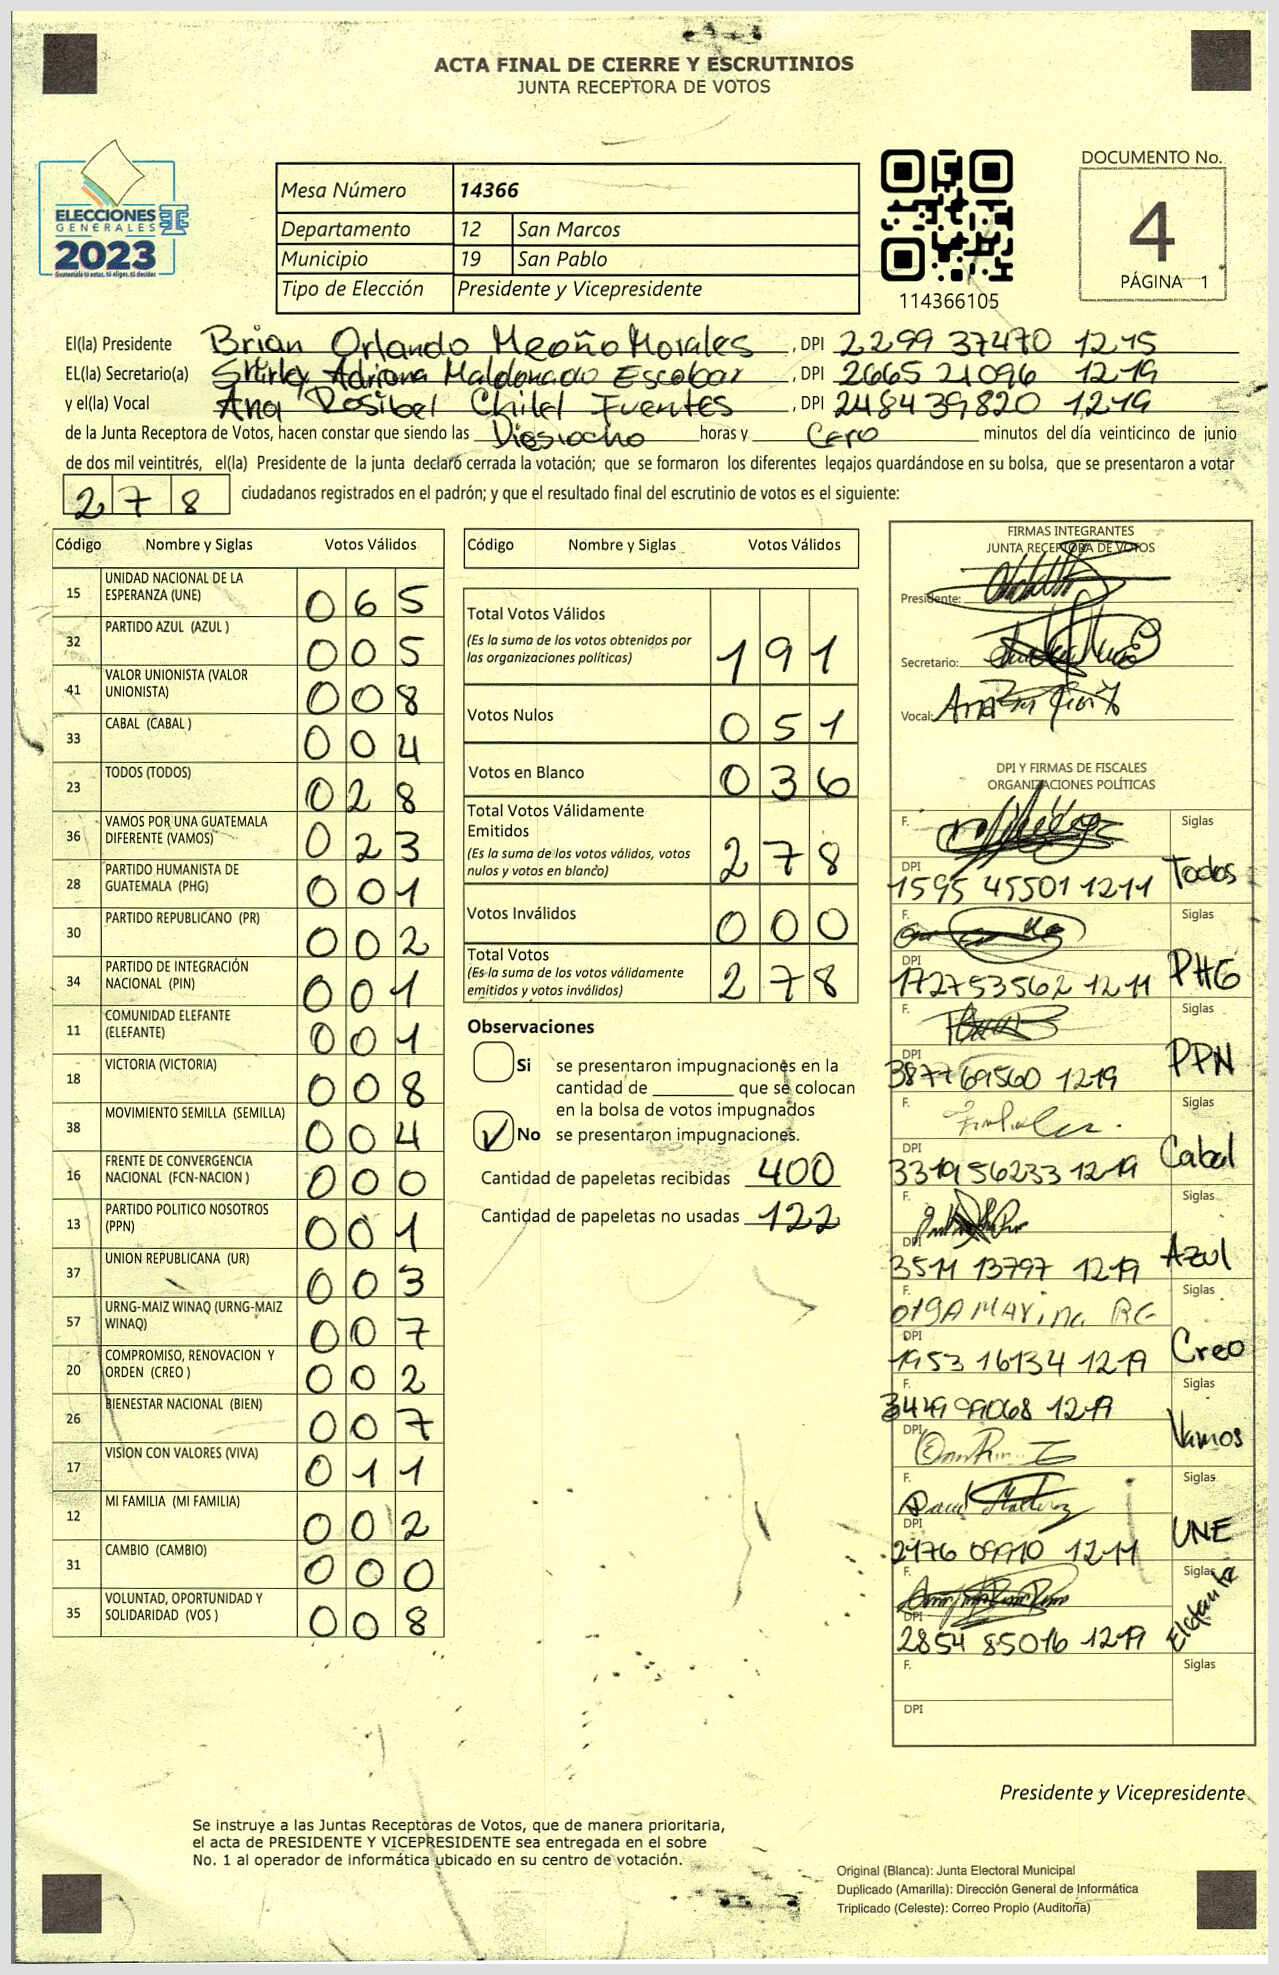 ACTA FINAL DE CIERRE Y ESCRUTINIOS
JUNTA RECEPTORA DE VOTOS
ELECCIONES
GENERALES
2023
Mesa Número 14366
Departamento 12 San Marcos
Municipio 19 San Pablo
Tipo de Elección Presidente y Vicepresidente
114366105
DOCUMENTO No.
4
PÁGINA 1
El(la) Presidente Brian Orlando Meoño Morales , DPI 2299 37470 1215
EL(la) Secretario(a) Shirley Adriana Maldonado Escobar , DPI 2665 21096 1219
y el(la) Vocal Ana Rosibel Chilel Fuentes , DPI 2484 39820 1219
de la Junta Receptora de Votos, hacen constar que siendo las Diesiocho horas y Cero minutos del día veinticinco de junio
de dos mil veintitrés, el(la) Presidente de la junta declaró cerrada la votación; que se formaron los diferentes legajos guardándose en su bolsa, que se presentaron a votar
278 ciudadanos registrados en el padrón; y que el resultado final del escrutinio de votos es el siguiente:
Código Nombre y Siglas Votos Válidos
15 UNIDAD NACIONAL DE LA ESPERANZA (UNE) 065
32 PARTIDO AZUL (AZUL ) 005
41 VALOR UNIONISTA (VALOR UNIONISTA) 008
33 CABAL (CABAL ) 004
23 TODOS (TODOS) 028
36 VAMOS POR UNA GUATEMALA DIFERENTE (VAMOS) 023
28 PARTIDO HUMANISTA DE GUATEMALA (PHG) 001
30 PARTIDO REPUBLICANO (PR) 002
34 PARTIDO DE INTEGRACIÓN NACIONAL (PIN) 001
11 COMUNIDAD ELEFANTE (ELEFANTE) 001
18 VICTORIA (VICTORIA) 008
38 MOVIMIENTO SEMILLA (SEMILLA) 004
16 FRENTE DE CONVERGENCIA NACIONAL (FCN-NACION ) 000
13 PARTIDO POLITICO NOSOTROS (PPN) 001
37 UNION REPUBLICANA (UR) 003
57 URNG-MAIZ WINAQ (URNG-MAIZ WINAQ) 007
20 COMPROMISO, RENOVACION Y ORDEN (CREO ) 002
26 BIENESTAR NACIONAL (BIEN) 007
17 VISION CON VALORES (VIVA) 011
12 MI FAMILIA (MI FAMILIA) 002
31 CAMBIO (CAMBIO) 000
35 VOLUNTAD, OPORTUNIDAD Y SOLIDARIDAD (VOS ) 008
Código Nombre y Siglas Votos Válidos
Total Votos Válidos 191
(Es la suma de los votos obtenidos por
las organizaciones políticas)
Votos Nulos 051
Votos en Blanco 036
Total Votos Válidamente
Emitidos 278
(Es la suma de los votos válidos, votos
nulos y votos en blanco)
Votos Inválidos 000
Total Votos 278
(Es la suma de los votos válidamente
emitidos y votos inválidos)
Observaciones
Si se presentaron impugnaciones en la
cantidad de que se colocan
en la bolsa de votos impugnados
No se presentaron impugnaciones.
Cantidad de papeletas recibidas 400
Cantidad de papeletas no usadas 122
FIRMAS INTEGRANTES
JUNTA RECEPTORA DE VOTOS
Presidente:
Secretario:
Vocal: Ana
DPI Y FIRMAS DE FISCALES
ORGANIZACIONES POLÍTICAS
F. Siglas
DPI 1595 45501 1211 Todos
F. Siglas
DPI 1727 53562 1211 PHG
F. Siglas
DPI 3877 69560 1219 PPN
F. Siglas
DPI 3319 56233 1219 Cabal
F. Siglas
DPI 3511 13797 1219 Azul
F. Siglas
DPI 1953 16134 1219 Creo
F. 3449 99068 1219 Siglas
DPI Vamos
F. Siglas
DPI 2176 09910 1211 UNE
F. Siglas
DPI 2854 85016 1219 Elefante
F. Siglas
DPI
Presidente y Vicepresidente
Se instruye a las Juntas Receptoras de Votos, que de manera prioritaria,
el acta de PRESIDENTE Y VICEPRESIDENTE sea entregada en el sobre
No. 1 al operador de informática ubicado en su centro de votación.
Original (Blanca): Junta Electoral Municipal
Duplicado (Amarilla): Dirección General de Informática
Triplicado (Celeste): Correo Propio (Auditoría)